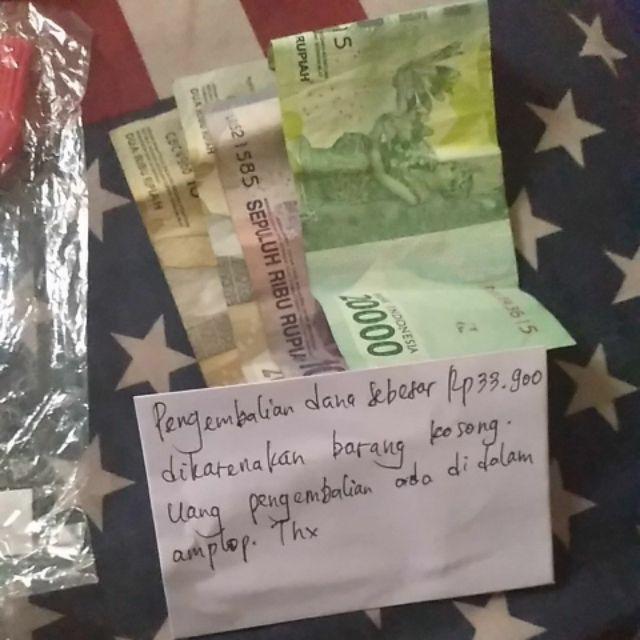 RUPIAH
15
DUA RIBU RUPIAH
021585
SEPULUH RIBU RUPIA
20000
INDONESIA
3515
Pengembalian dana sebesar Rp33.900
dikarenakan barang kosong.
Uang pengembalian ada di dalam
amplop. Thx